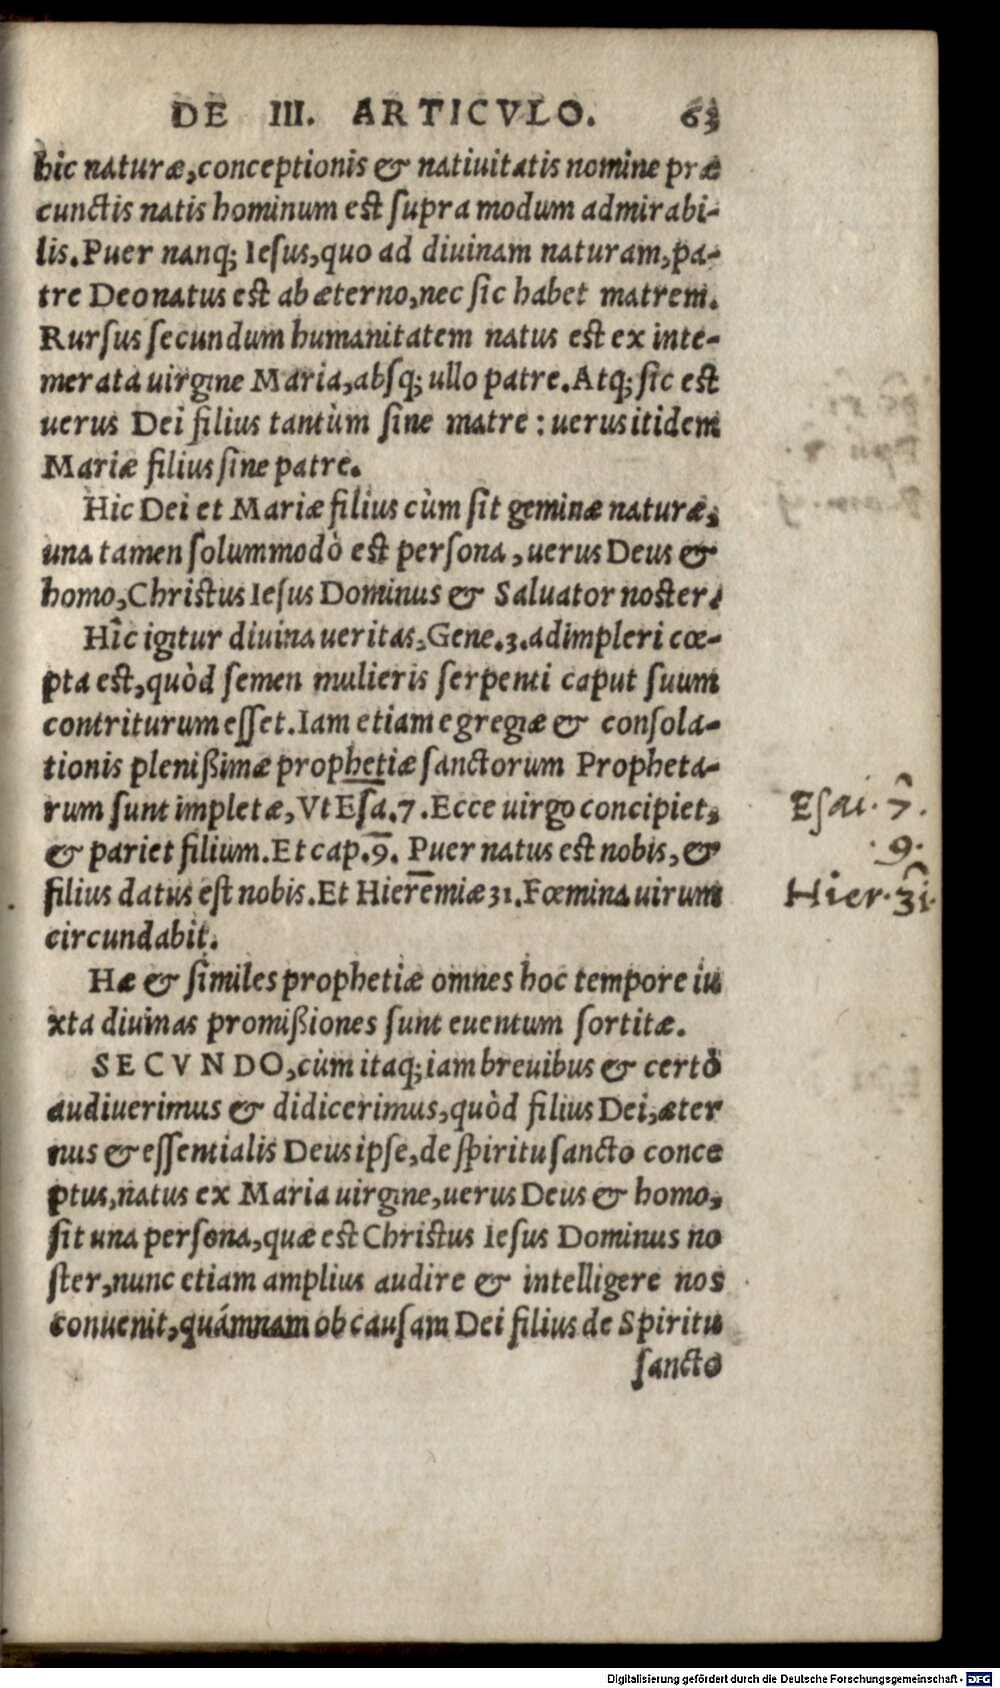 DE III. ARTICVLO. 63
hic naturæ, conceptionis & natiuitatis nomine præ
cunctis natis hominum est supra modum admirabi-
lis. Puer nanq; Iesus, quo ad diuinam naturam, pa-
tre Deo natus est ab æterno, nec sic habet matrem.
Rursus secundum humanitatem natus est ex inte-
merata uirgine Maria, absq; ullo patre. Atq; sic est
uerus Dei filius tantùm sine matre : uerus itidem
Mariæ filius sine patre.
Hic Dei et Mariæ filius cùm sit geminæ naturæ,
una tamen solummodò est persona, uerus Deus &
homo, Christus Iesus Dominus & Saluator noster.
Hîc igitur diuina ueritas, Gene. 3. adimpleri cœ-
pta est, quòd semen mulieris serpenti caput suum
contriturum esset. Iam etiam egregiæ & consola-
tionis plenißimæ prophetiæ sanctorum Propheta-
rum sunt impletæ, Vt Esa. 7. Ecce uirgo concipiet,
& pariet filium. Et cap. 9. Puer natus est nobis, &
filius datus est nobis. Et Hieremiæ 31. Fœmina uirum
circundabit.
Esai. 7.
9.
Hier. 31.
Hæ & similes prophetiæ omnes hoc tempore iu
xta diuinas promißiones sunt euentum sortitæ.
SECVNDO, cùm itaq; iam breuibus & certò
audiuerimus & didicerimus, quòd filius Dei, æter
nus & essentialis Deus ipse, de spiritu sancto conce
ptus, natus ex Maria uirgine, uerus Deus & homo,
sit una persona, quæ est Christus Iesus Dominus no
ster, nunc etiam amplius audire & intelligere nos
conuenit, quámnam ob causam Dei filius de Spiritu
sancto
Digitalisierung gefördert durch die Deutsche Forschungsgemeinschaft - DFG